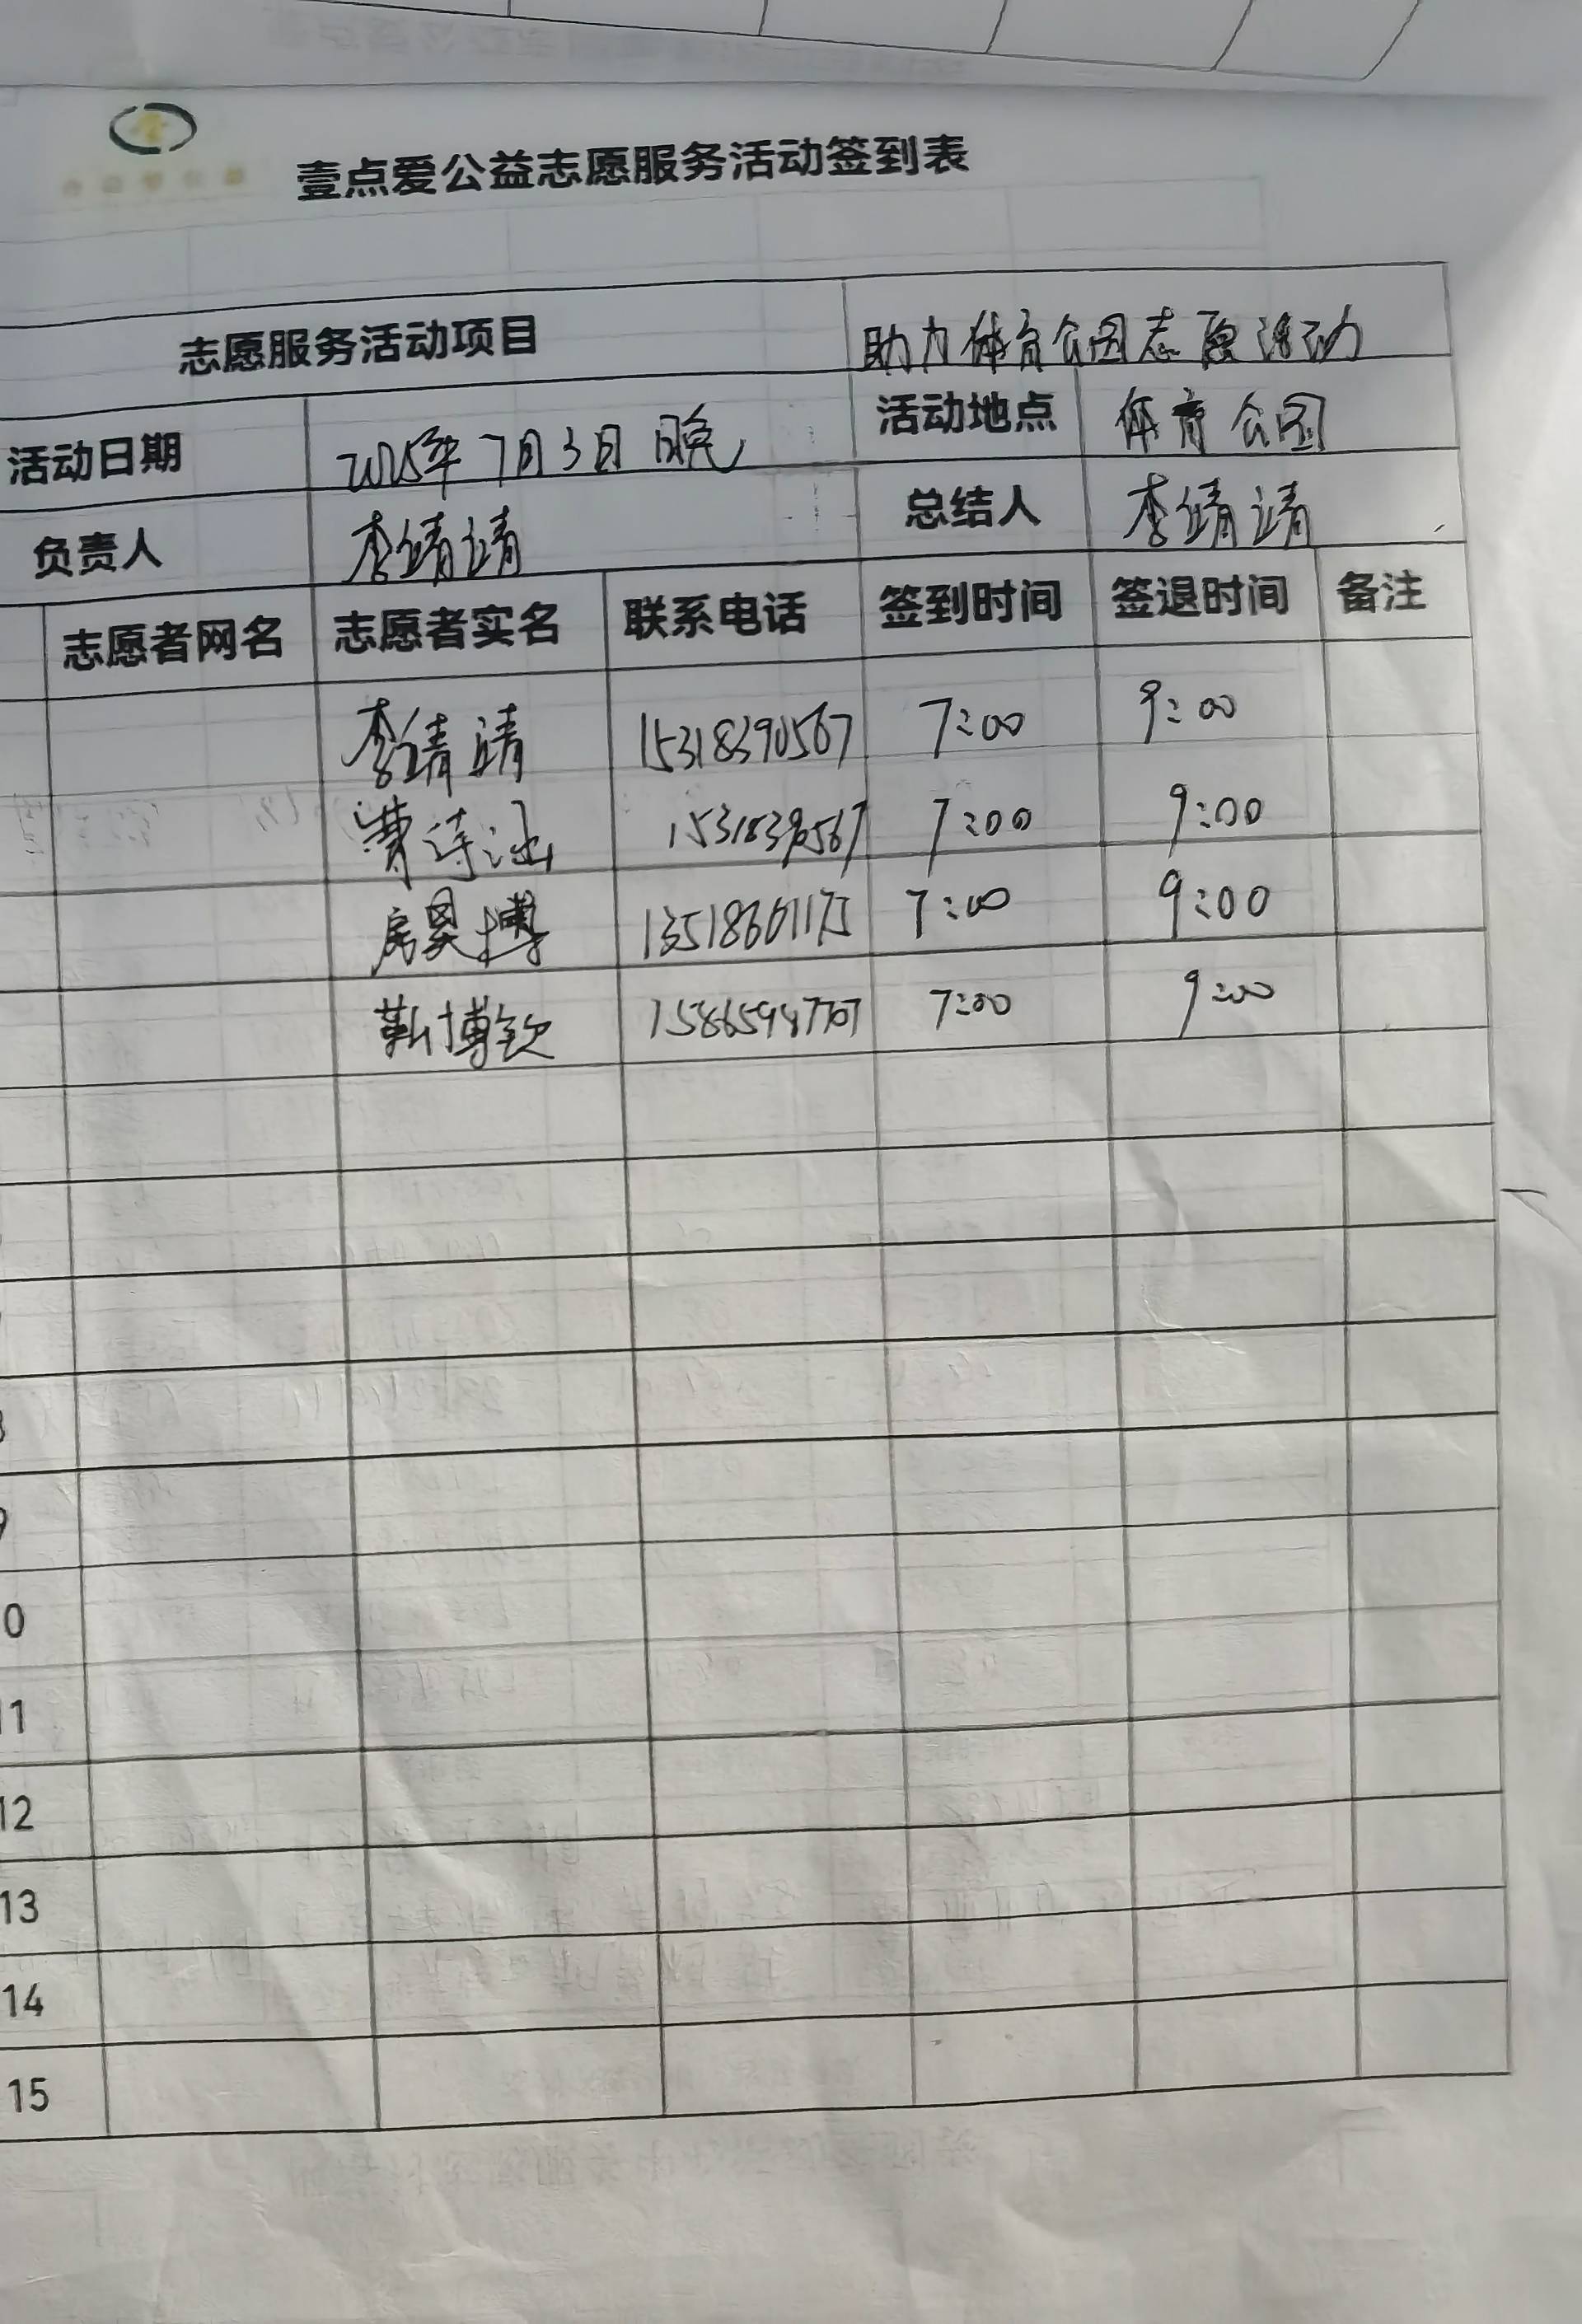 壹点爱公益志愿服务活动签到表
志愿服务活动项目 助力体育公园志愿活动
活动日期 2025年7月3日晚 活动地点 体育公园
负责人 李靖靖 总结人 李靖靖
志愿者网名 志愿者实名 联系电话 签到时间 签退时间 备注
李靖靖 15318390567 7:00 9:00
曹诗涵 15318390567 7:00 9:00
房昊博 7:00 9:00
靳博钦 7:00 9:00
10
11
12
13
14
15